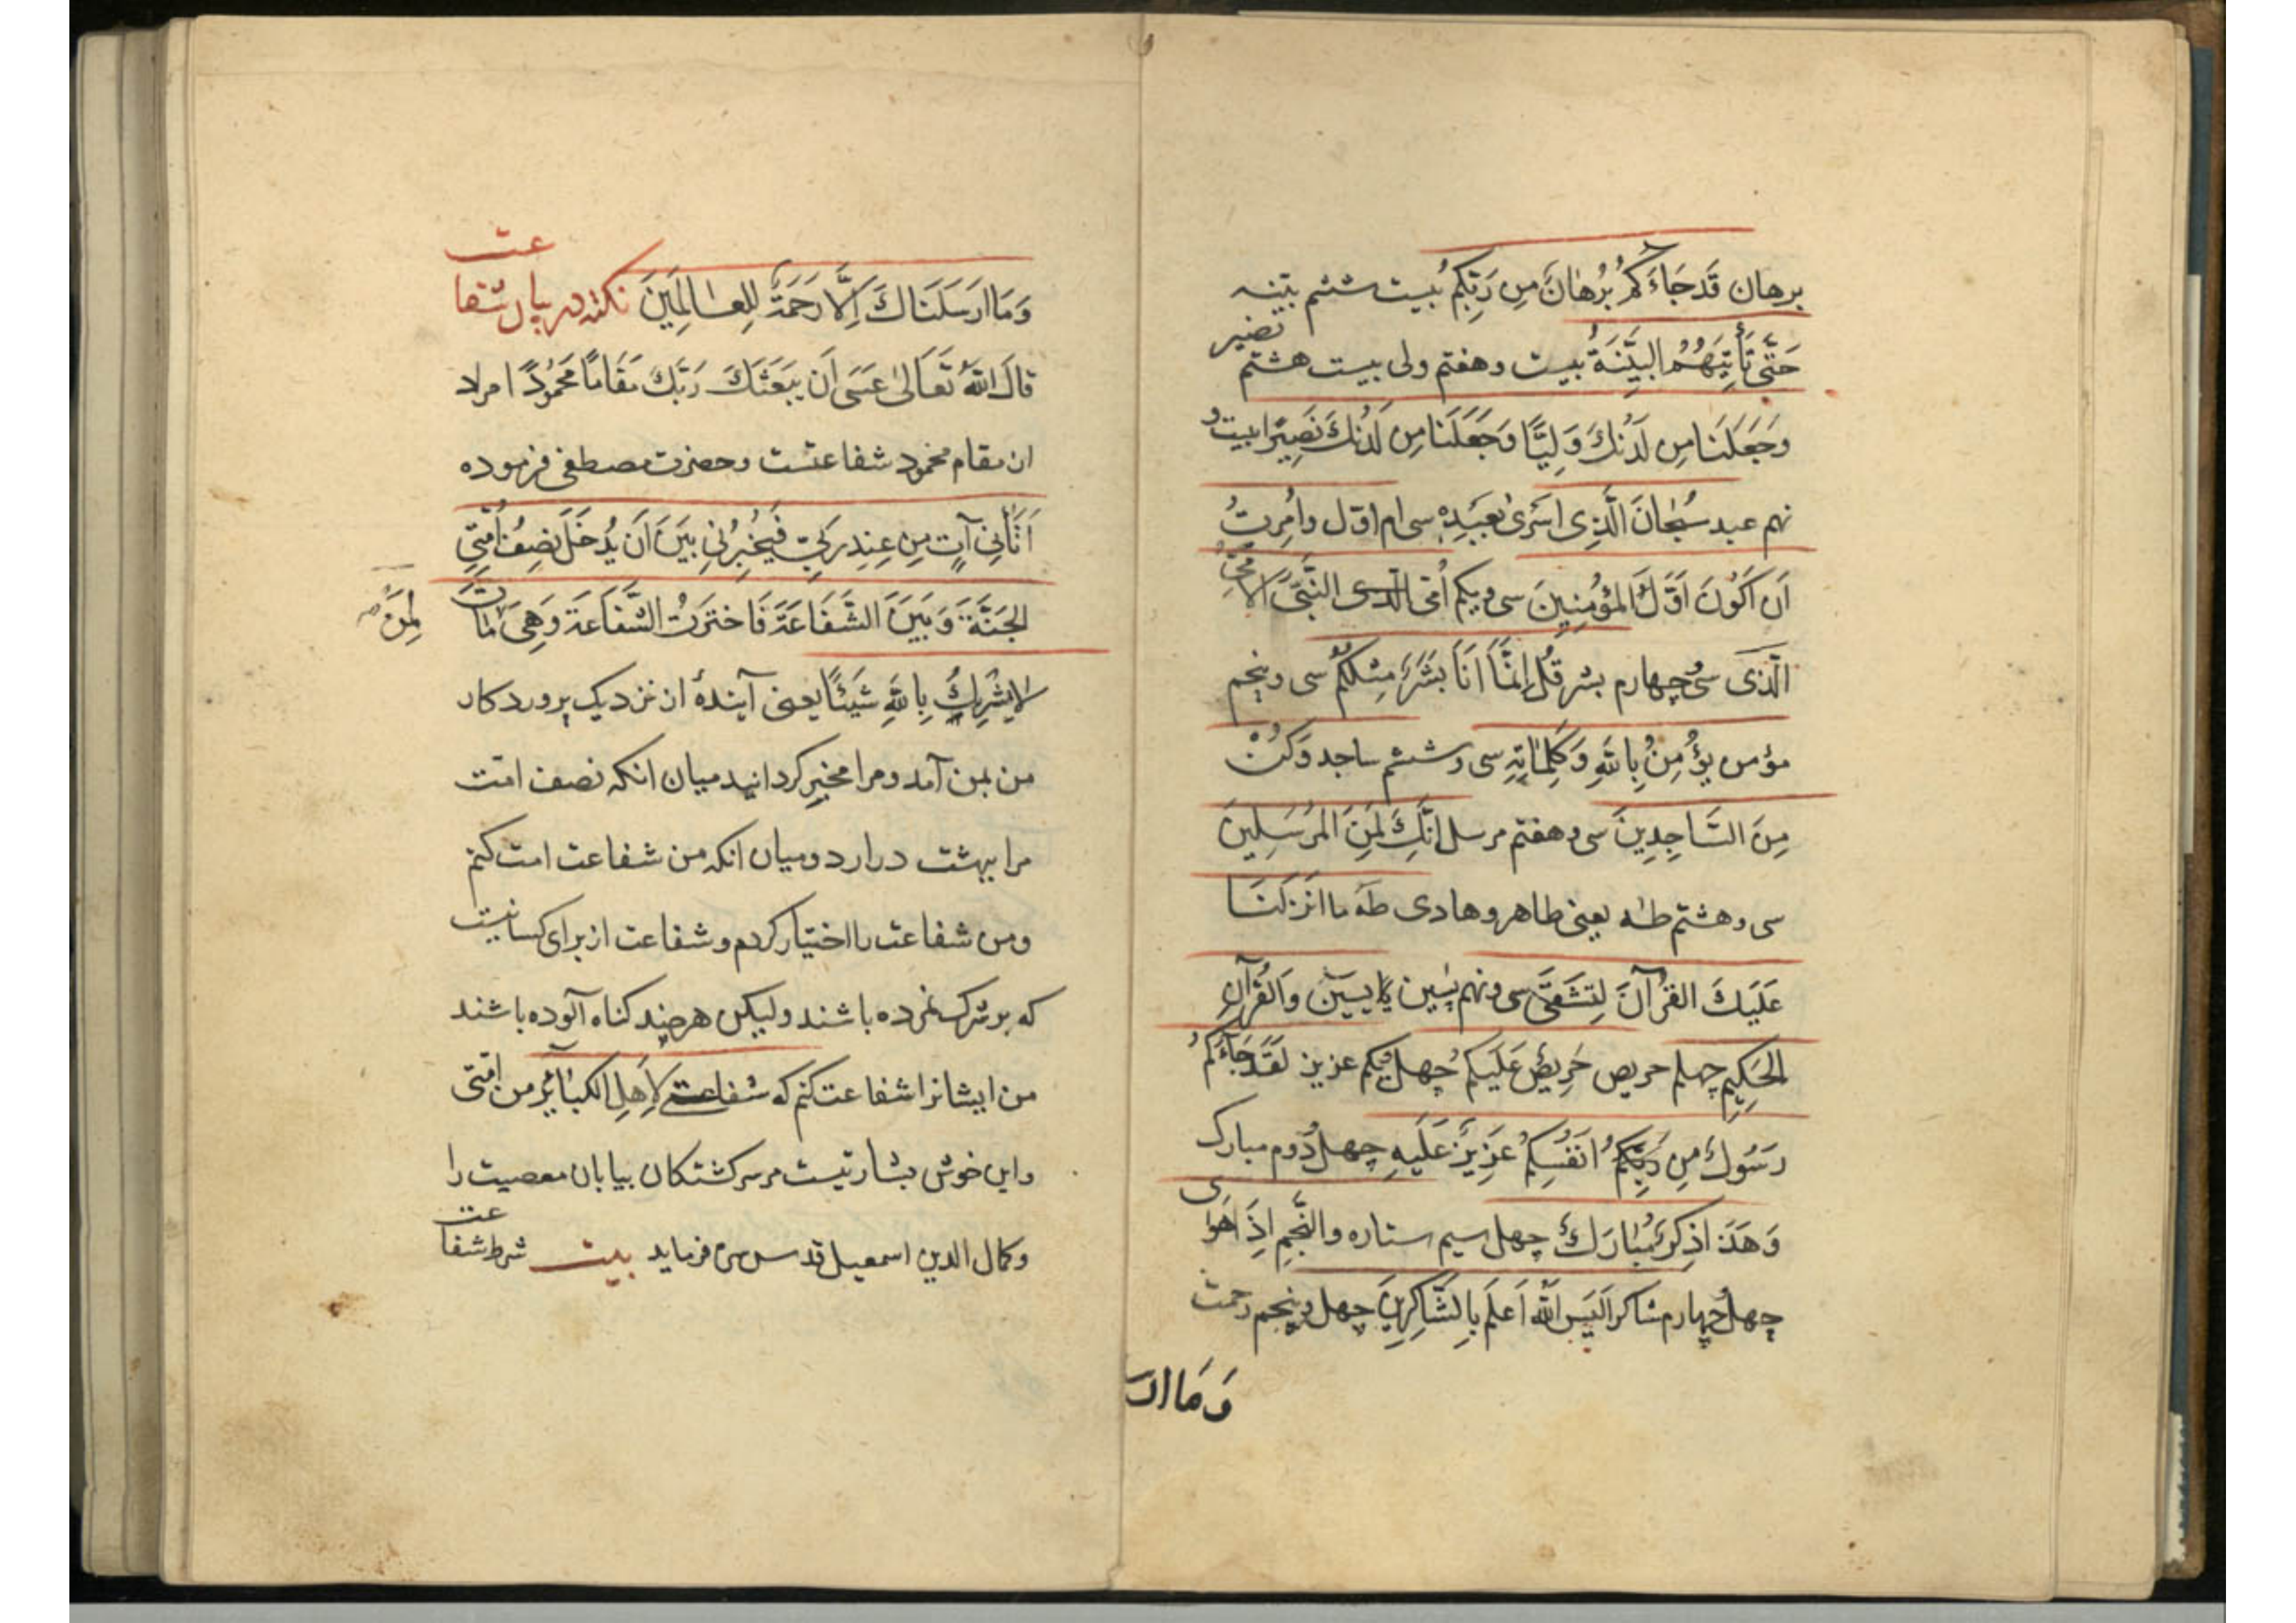 برهان قَدجَاءَكُم بُرْهَانٌ مِن رَبِّكُم بیست ششم بیّنه
حَتَّى تَأْتِيَهُمُ البَيِّنَةُ بیست وهفتم ولی بیست هشتم نصیر
وَجَعَلَنَا مِن لَدُنْكَ وَلِيًّا وَجَعَلَنَا مِن لَدُنْكَ نَصِيرًا بیست و
نهم عبد سُبْحَانَ الَّذِى اَسْرَىٰ بِعَبْدِهِ سی ام اوّل وَاُمِرتُ
اَن اَكُونَ اَوَّلَ المُؤْمِنِينَ سی ویکم اُمّی النَّبِىَّ الاُمِّىَّ
الَّذِى سی چهارم بشر قُل اِنَّمَا اَنَا بَشَرٌ مِثلُكُم سی وپنجم
مؤمن يُؤْمِنُ بِاللَّهِ وَكَلِمَاتِهِ سی وششم ساجد وَكُنْ
مِنَ السَّاجِدِينَ سی وهفتم مرسل اِنَّكَ لَمِنَ المُرْسَلِينَ
سی وهشتم طٰه یعنی طاهر وهادی طٰهٰ مَا اَنْزَلْنَا
عَلَيكَ القُرْآنَ لِتَشْقَىٰ سی ونهم یٰسین یا یسین وَالقُرْآنِ
الحَكِيمِ چهلم حریص حَرِيصٌ عَلَيكُم چهل ویکم عزیز لَقَدجَاءَكُم
رَسُولٌ مِن اَنفُسِكُم عَزِيزٌ عَلَيهِ چهل دُوم مبارک
وَهَذَا ذِكرٌ مُبَارَكٌ چهل سیم ستاره والنَّجمِ اِذَا هَوَى
چهل چهارم شاکر اَلَيسَ اللَّهُ اَعلَمَ بِالشَّاكِرِينَ چهل وپنجم رحمت
وَمَا ارس
وَمَا ارَسَلَنَاكَ اِلَّا رَحمَةً لِلعَالَمِينَ نکته در بیان شفاعت
قَالَ اللَّهُ تَعَالَىٰ عَسَى اَن يَبعَثَكَ رَبُّكَ مَقَامًا مَحمُودًا مراد
ان مقام محمود شفاعتست وحضرت مصطفی فرموده
اَتَانِى آتٍ مِن عِندِ رَبِّى فَيُخبِرُنِى بَينَ اَن يُدخَلَ نِصفُ اُمَّتِى
الجَنَّةَ وَبَينَ الشَّفَاعَةَ فَاختَرتُ الشَّفَاعَةَ وَهِىَ لِمَنْ مَاتَ
لَا يُشْرِكُ بِاللَّهِ شَيئًا یعنی آیندهٔ از نزدیک پروردکار
من بمن آمد ومرا مخیر کردانید میان انکه نصف امّت
مرا ببهشت درارد ومیان انکه من شفاعت امت کنم
ومن شفاعت را اختیار کردم وشفاعت از برای کسانیست
که بر شرک نمرده باشند ولیکن هرچند کناه آلوده باشند
من ایشانرا شفاعت کنم که شفاعتی لِاَهلِ الكَبَائِرِ من اُمَّتی
واین خوش بشارتیست مرسرکشتکان بیابان معصیت را
وکمال الدین اسمعیل قدس سره فرماید بیت شرط شفاعت